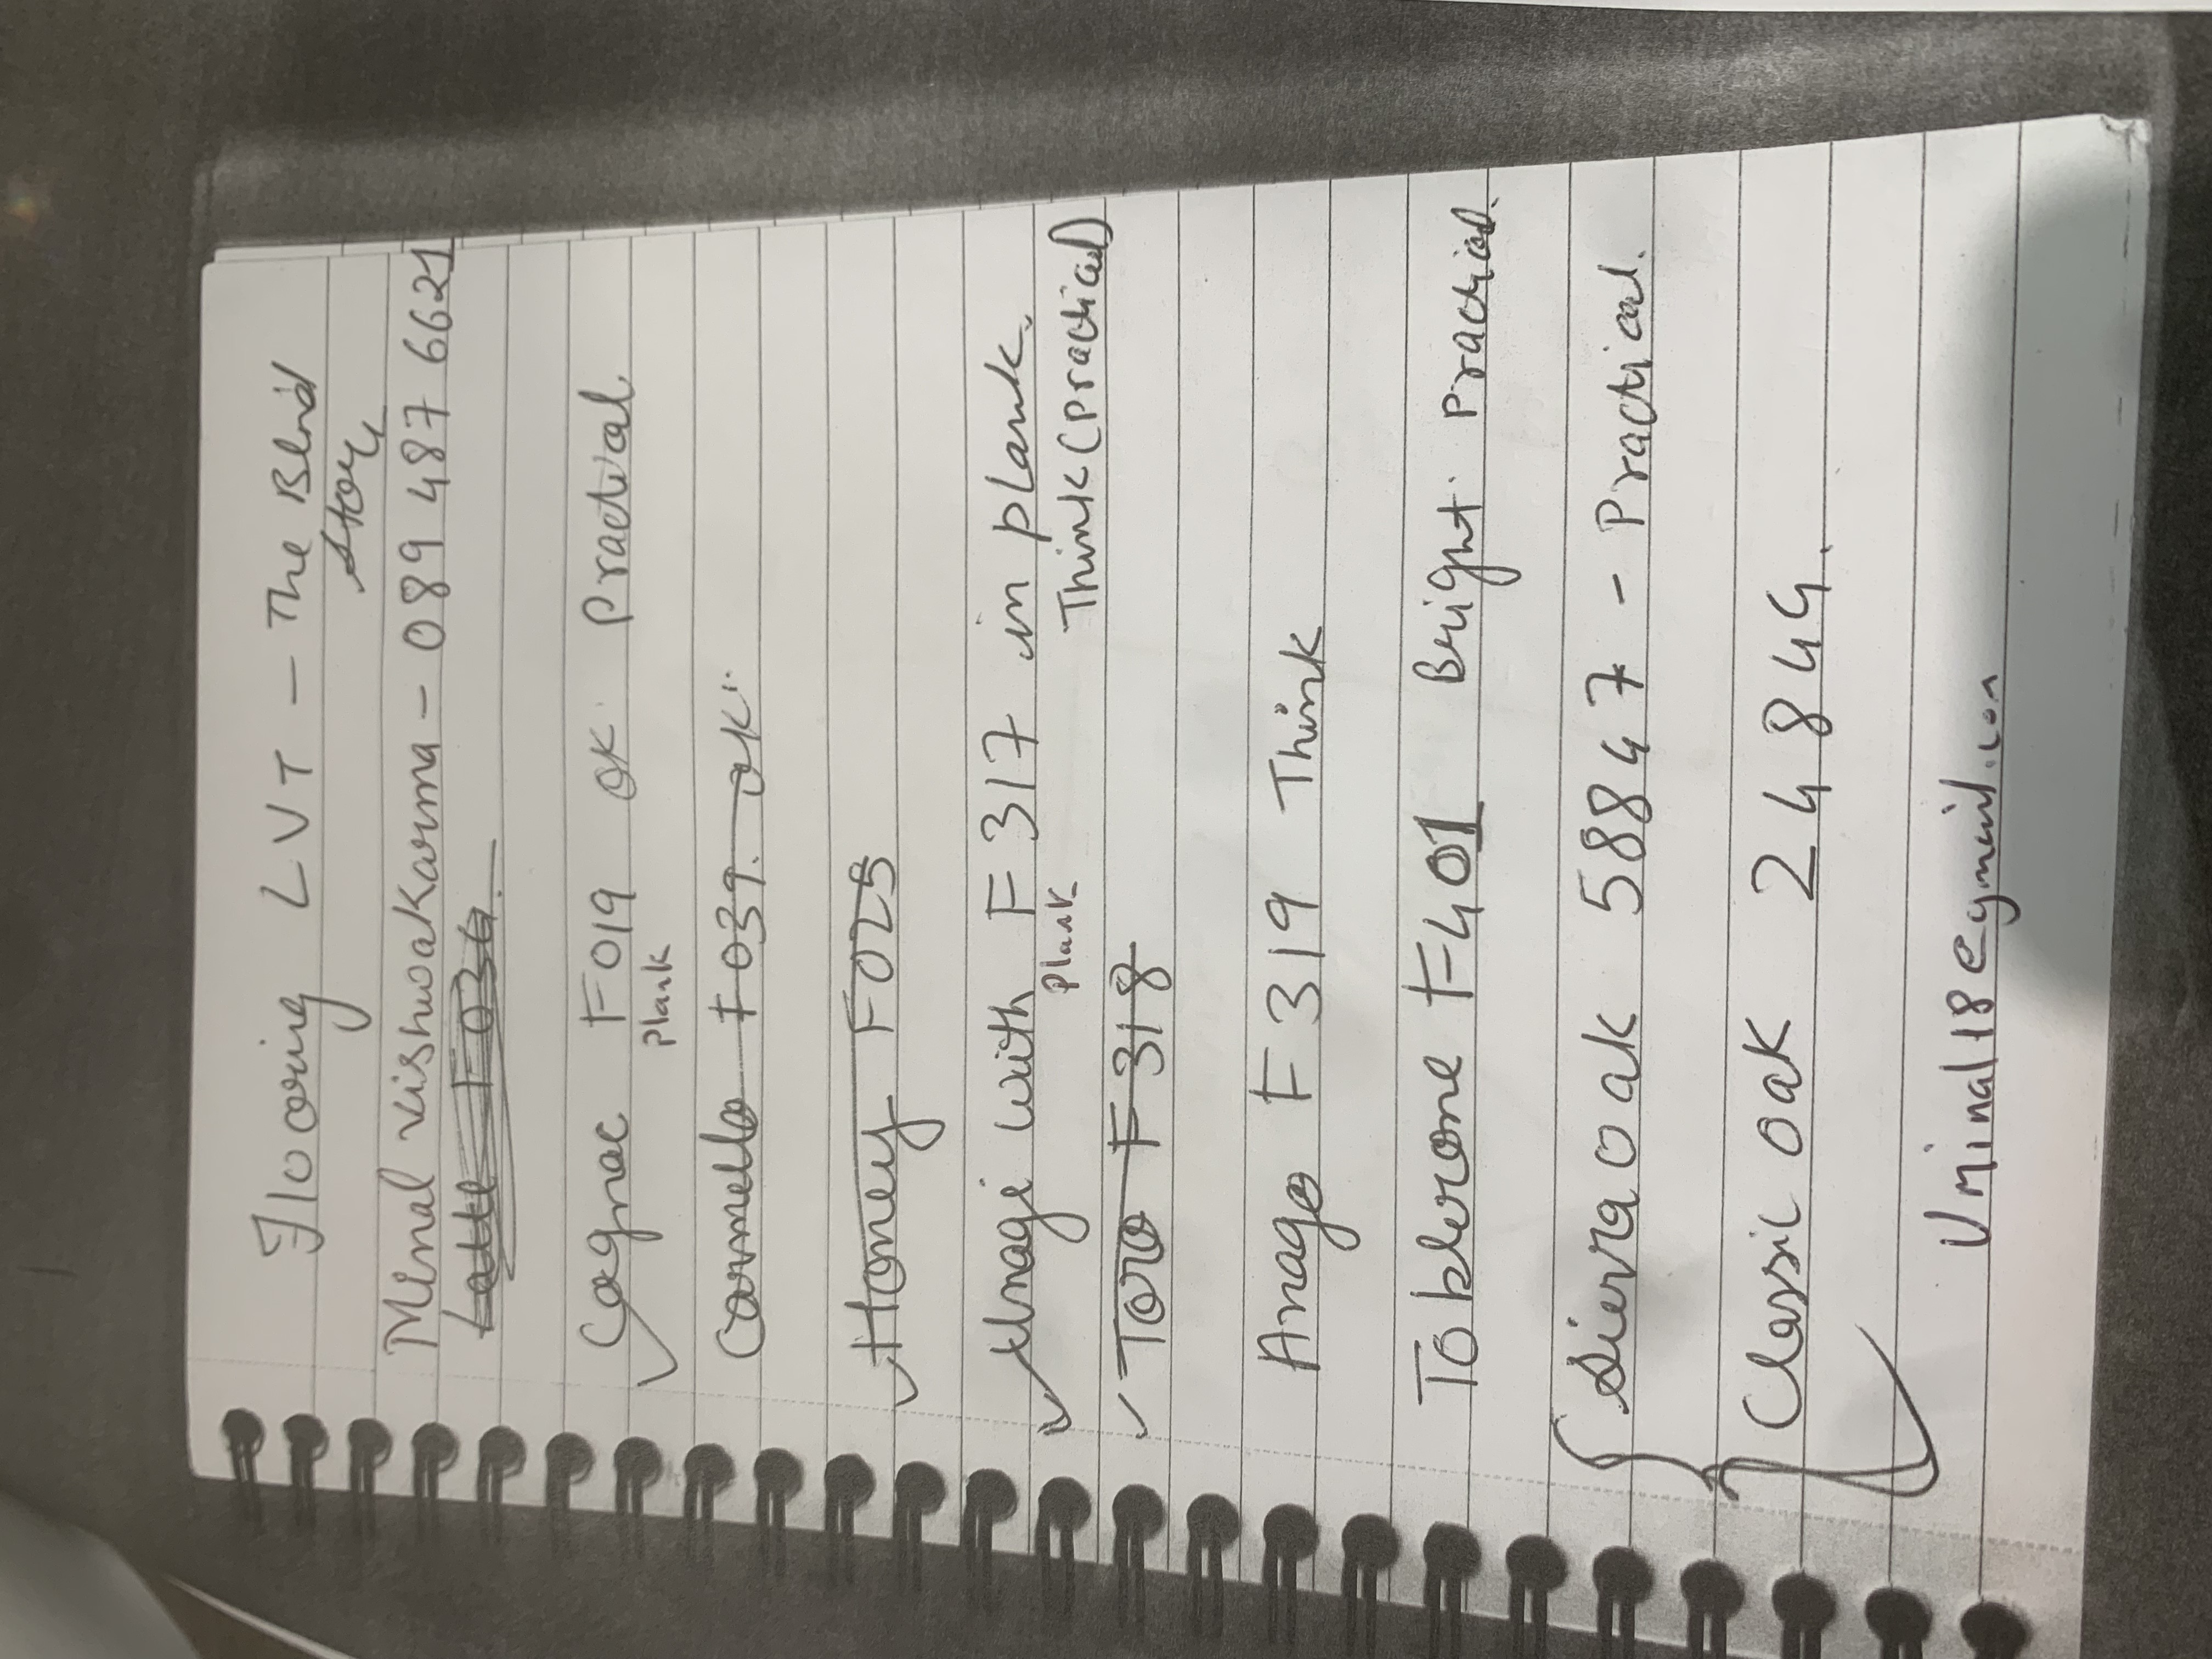 Flooring LVT - The Blnd
Story
Minal Vishwakarma - 089 487 6621
Latte F034.
Cognac F019 OK. Practical.
Plank
Carmelo F039. OK.
Honey F025
Unagi with F317 in plank.
Plank Think (Practical)
Toro F318
Anago F319 Think
Toblerone F401 Bright. Practical.
Sierra oak 58847 - Practical.
Classic oak 24844.
Vminal18@gmail.com